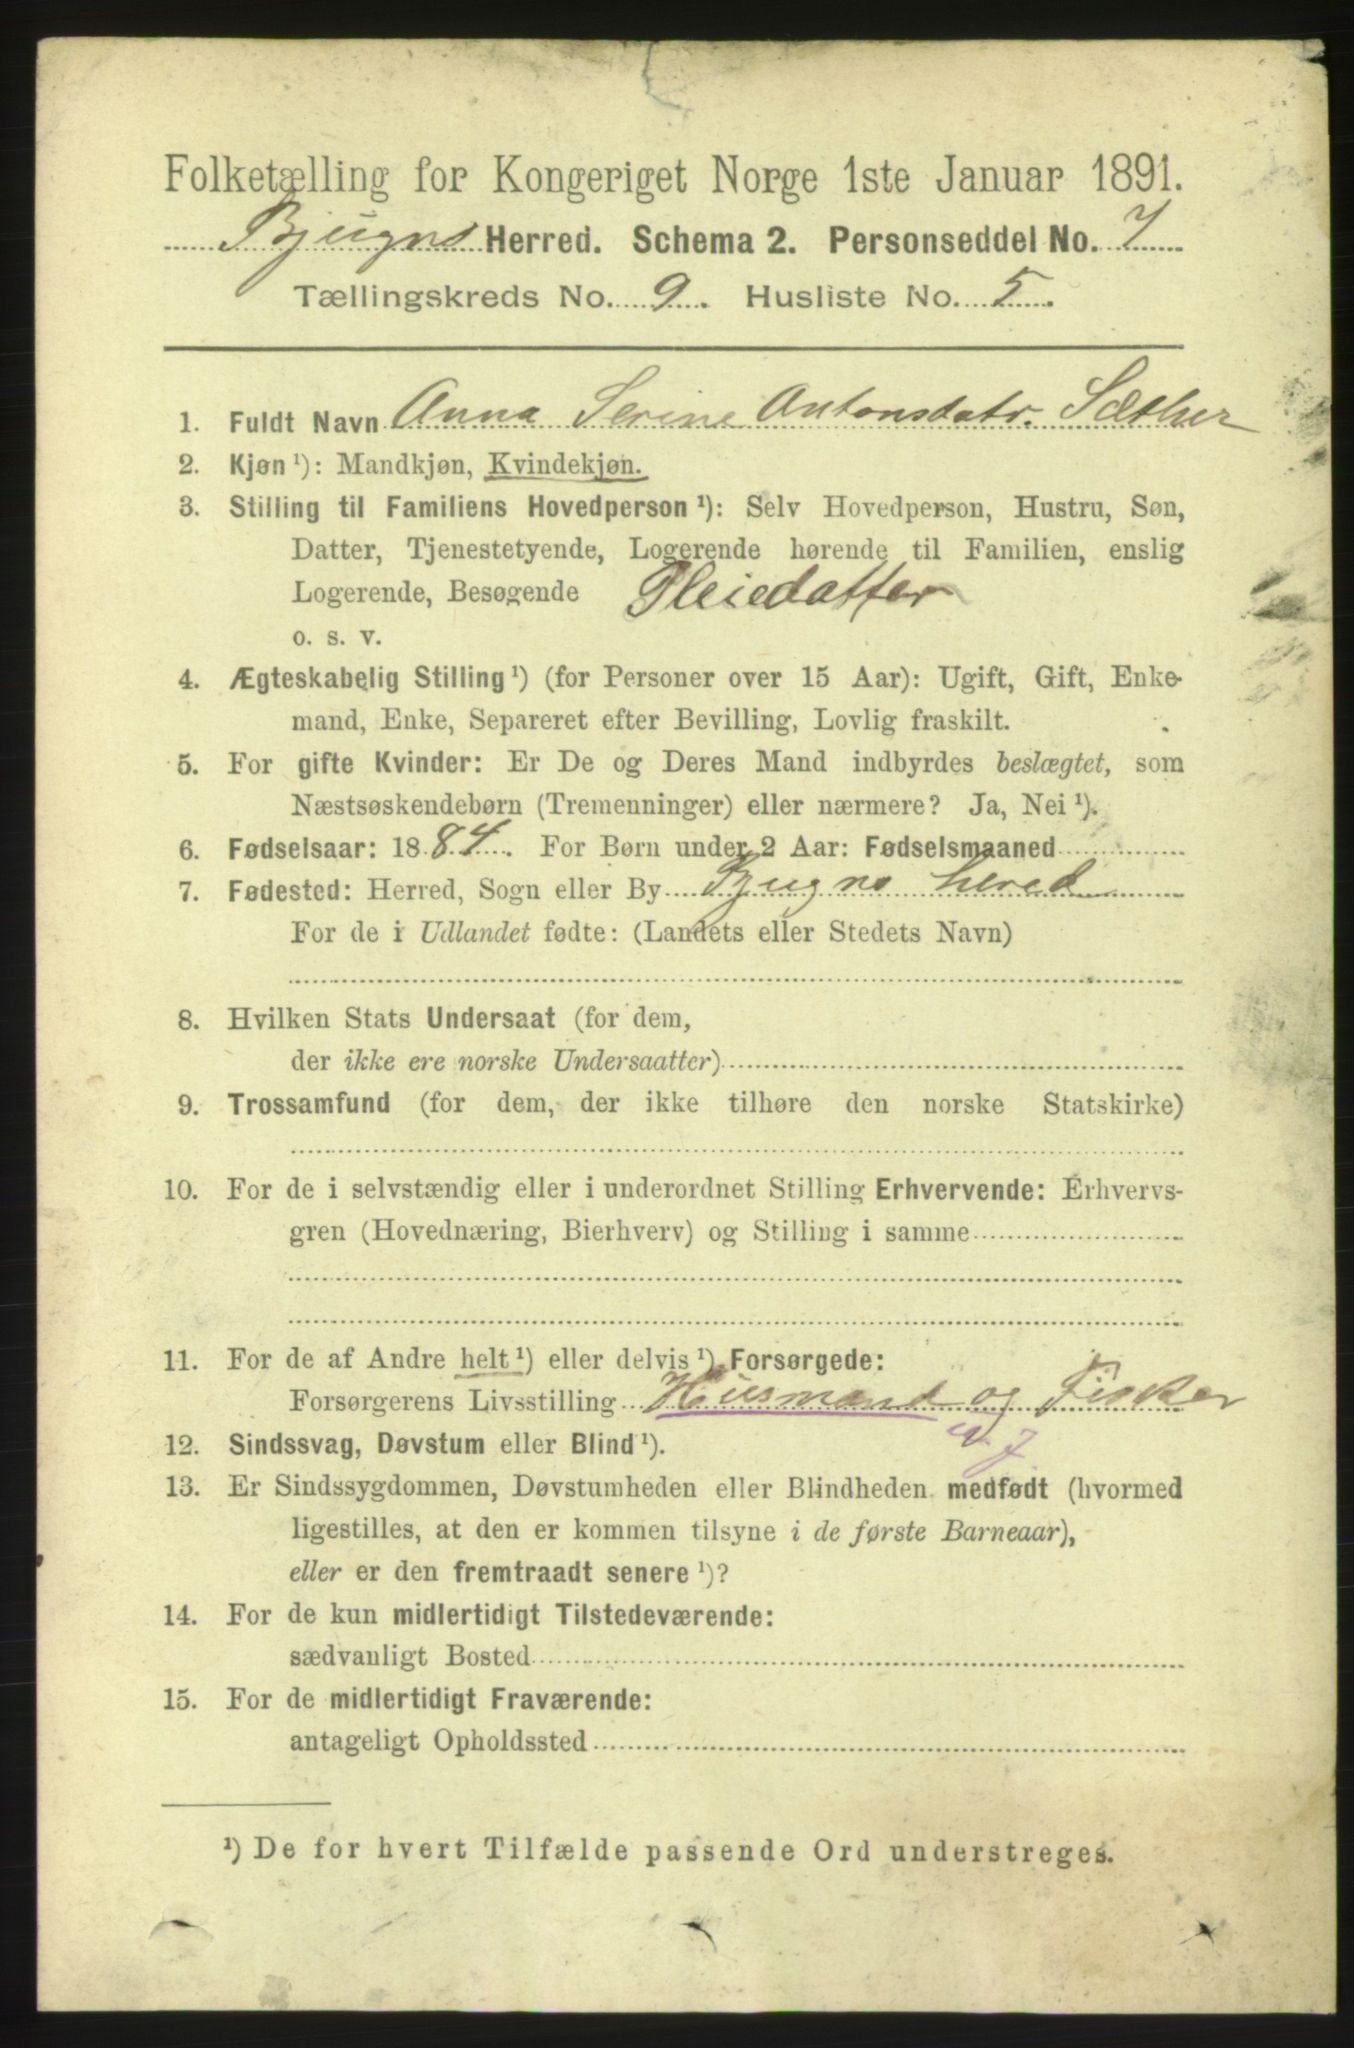 Folketælling for Kongeriget Norge 1ste Januar 1891.
Bjugns Herred. Schema 2. Personseddel No. 7
Tællingskreds No. 9. Husliste No. 5.
1. Fuldt Navn Anna Serine Antonsdatr. Sæther
2. Kjøn ¹): Mandkjøn, Kvindekjøn.
3. Stilling til Familiens Hovedperson ¹): Selv Hovedperson, Hustru, Søn,
Datter, Tjenestetyende, Logerende hørende til Familien, enslig
Logerende, Besøgende Pleiedatter
o. s. v.
4. Ægteskabelig Stilling ¹) (for Personer over 15 Aar): Ugift, Gift, Enke-
mand, Enke, Separeret efter Bevilling, Lovlig fraskilt.
5. For gifte Kvinder: Er De og Deres Mand indbyrdes beslægtet, som
Næstsøskendebørn (Tremenninger) eller nærmere? Ja, Nei ¹).
6. Fødselsaar: 1884. For Børn under 2 Aar: Fødselsmaaned
7. Fødested: Herred, Sogn eller By Bjugns herred
For de i Udlandet fødte: (Landets eller Stedets Navn)
8. Hvilken Stats Undersaat (for dem,
der ikke ere norske Undersaatter)
9. Trossamfund (for dem, der ikke tilhøre den norske Statskirke)
10. For de i selvstændig eller i underordnet Stilling Erhvervende: Erhvervs-
gren (Hovednæring, Bierhverv) og Stilling i samme
11. For de af Andre helt ¹) eller delvis ¹) Forsørgede:
Forsørgerens Livsstilling Husmand og Fisker
12. Sindssvag, Døvstum eller Blind ¹).
13. Er Sindssygdommen, Døvstumheden eller Blindheden medfødt (hvormed
ligestilles, at den er kommen tilsyne i de første Barneaar),
eller er den fremtraadt senere ¹)?
14. For de kun midlertidigt Tilstedeværende:
sædvanligt Bosted
15. For de midlertidigt Fraværende:
antageligt Opholdssted
¹) De for hvert Tilfælde passende Ord understreges.